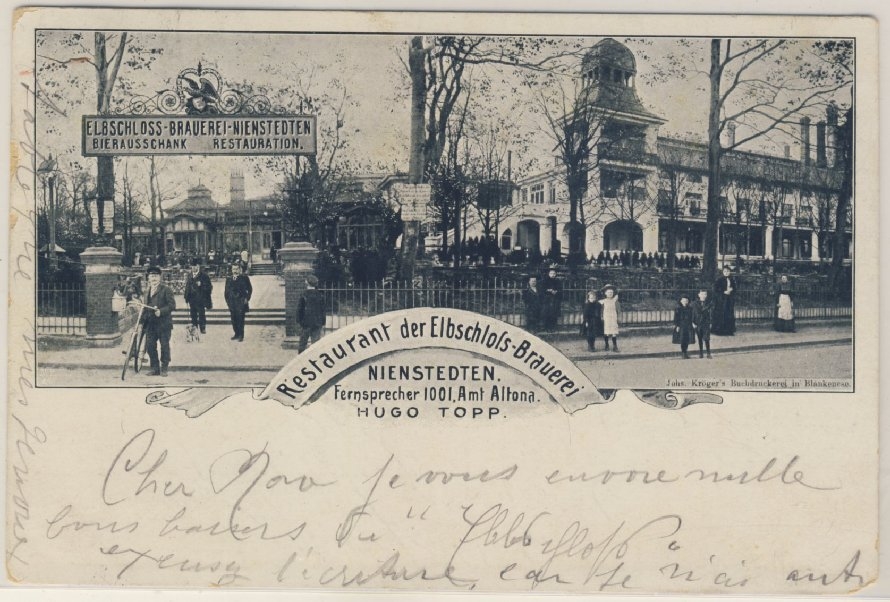 ELBSCHLOSS-BRAUEREI-NIENSTEDTEN
BIERAUSSCHANK RESTAURATION.
Restaurant der Elbschloſs-Brauerei
NIENSTEDTEN.
Fernsprecher 1001, Amt Altona.
HUGO TOPP.
Johs. Kröger's Buchdruckerei in Blankenese.
Cher je vous envoie mille
bons baisers du "Elbschloſs"
excusez l'écriture, car je n'ai